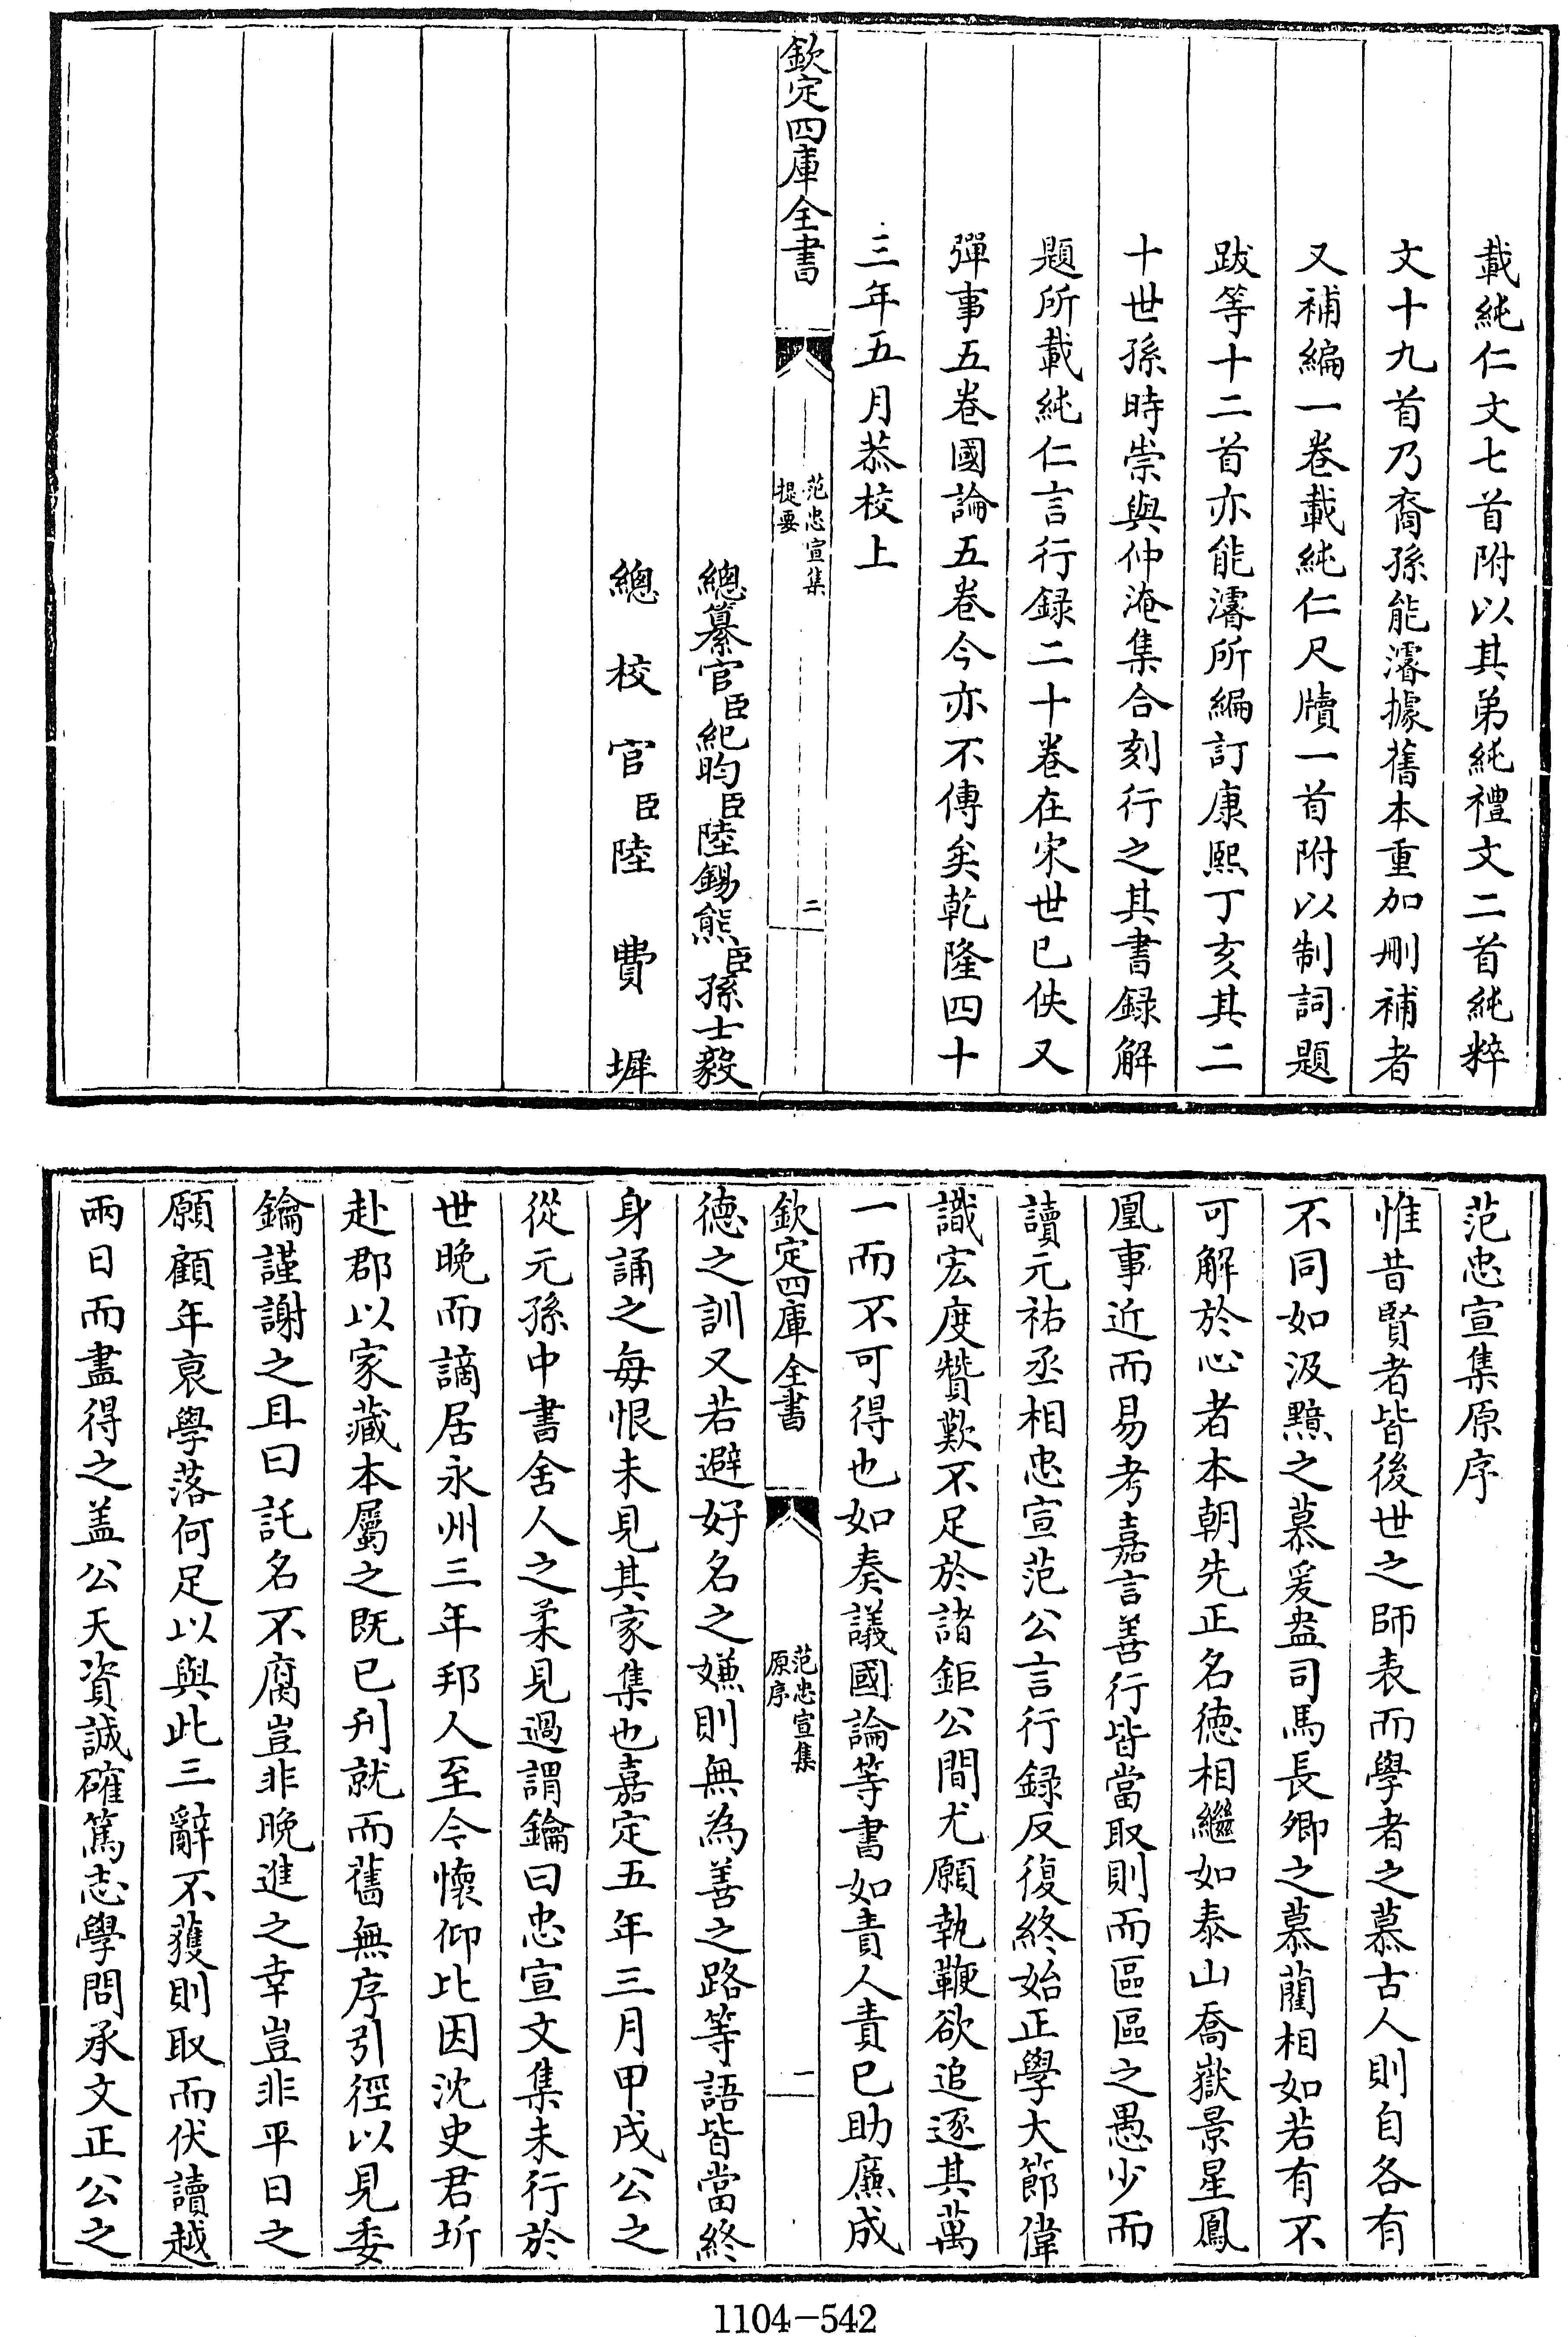 載純仁文七首附以其弟純禮文二首純粹
文十九首乃裔孫能濬據舊本重加刪補者
又補編一卷載純仁尺牘一首附以制詞題
跋等十二首亦能濬所編訂康熙丁亥其二
十世孫時崇與仲淹集合刻行之其書録解
題所載純仁言行録二十卷在宋世已佚又
彈事五卷國論五卷今亦不傳矣乾隆四十
三年五月恭校上
欽定四庫全書
范忠宣集
提要
二
總纂官臣紀昀臣陸錫熊臣孫士毅
總校官臣陸費墀
范忠宣集原序
惟昔賢者皆後世之師表而學者之慕古人則自各有
不同如汲黯之慕爰盎司馬長卿之慕藺相如若有不
可解於心者本朝先正名德相繼如泰山喬嶽景星鳳
凰事近而易考嘉言善行皆當取則而區區之愚少而
讀元祐丞相忠宣范公言行録反復終始正學大節偉
識宏度贊歎不足於諸鉅公間尤願執鞭欲追逐其萬
一而不可得也如奏議國論等書如責人責已助廉成
欽定四庫全書
范忠宣集
原序
一
德之訓又若避好名之嫌則無為善之路等語皆當終
身誦之每恨未見其家集也嘉定五年三月甲戌公之
從元孫中書舍人之柔見過謂鑰曰忠宣文集未行於
世晚而謫居永州三年邦人至今懷仰比因沈史君圻
赴郡以家藏本屬之既已刋就而舊無序引徑以見委
鑰謹謝之且曰託名不腐豈非晚進之幸豈非平日之
願顧年衰學落何足以與此三辭不獲則取而伏讀越
兩日而盡得之盖公天資誠確篤志學問承文正公之
1104-542